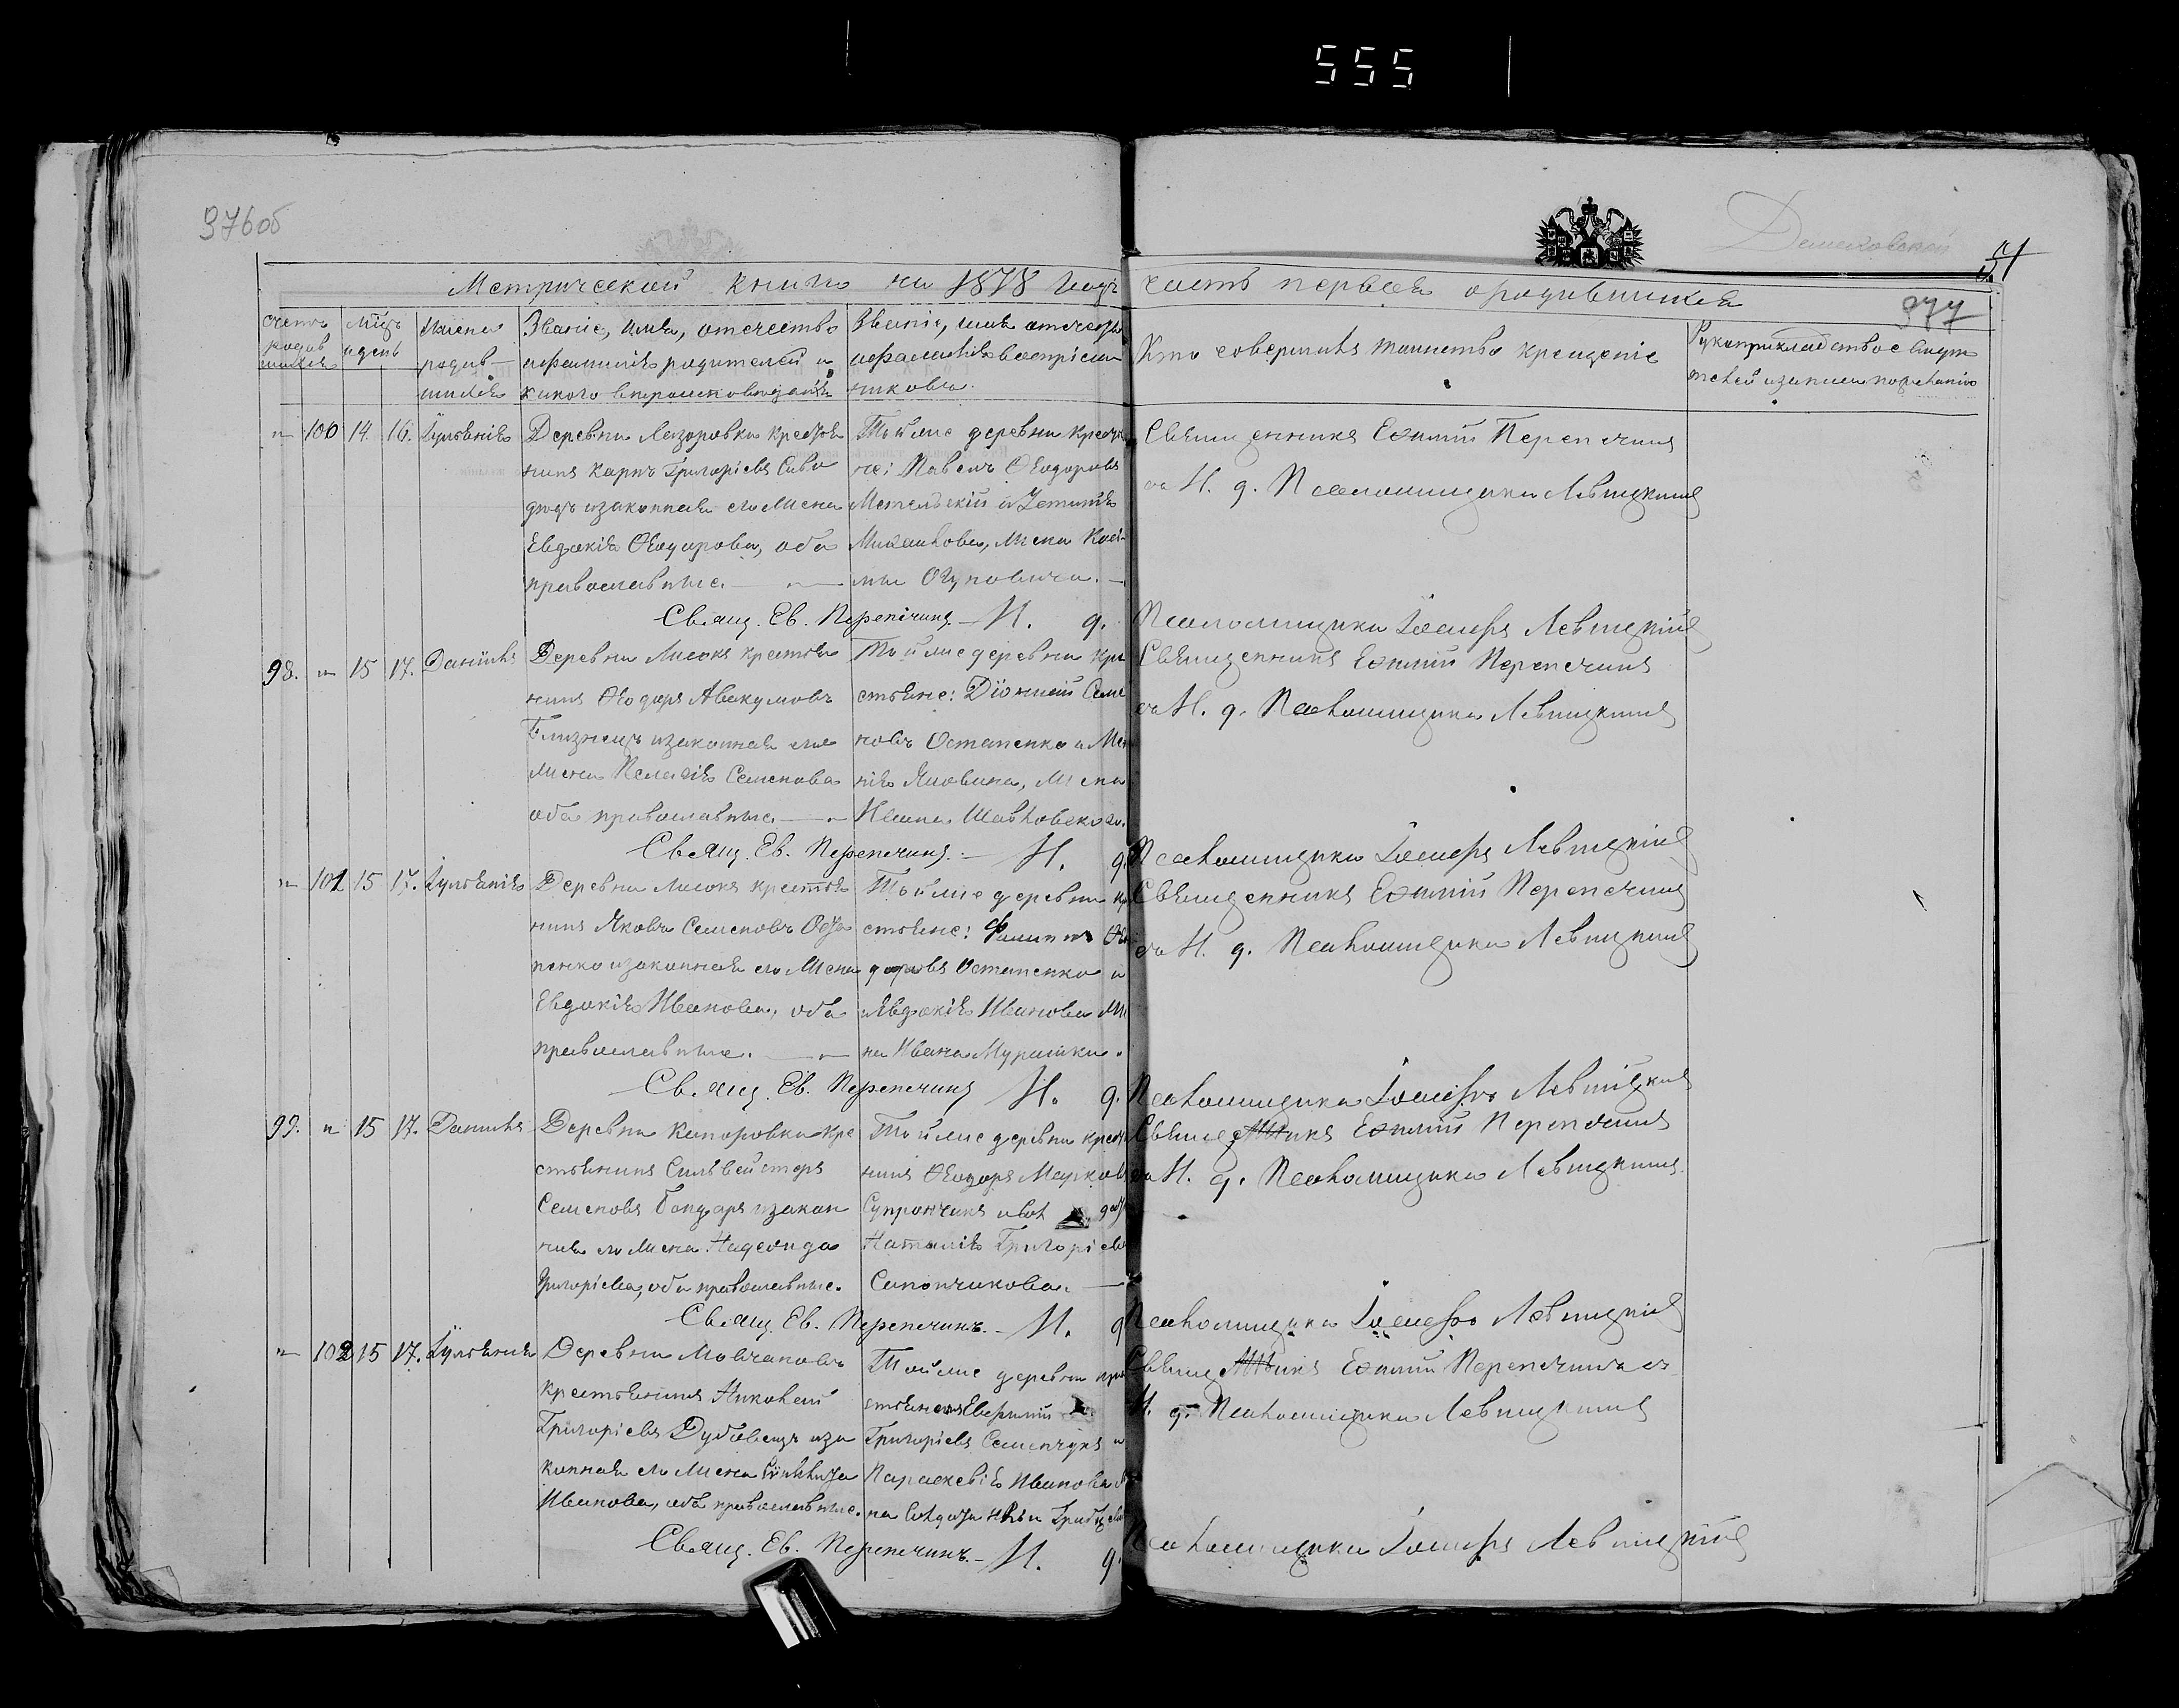 555
376об
Демековской
51
377
Метрической книги на 1878 годъ часть первая о родившихся
Счетъ родившихся
Мѣсяцъ и день
Имена родившихся
Званіе, имя, отчество и фамилія родителей и какого вѣроисповѣданія
Званіе, имя отчество и фамилія воспріемниковъ.
Кто совершилъ таинство крещенія
Рукоприкладство свидѣтелей записи по желанію
" 100 14. 16. Іуліанія
Деревни Лазоровки крестья
нинъ Карпъ Григоріевъ Сиво
дѣдъ и законная его жена
Евдокія Ѳеодорова, оба
православные.
Той же деревни крестья
не: Павелъ Ѳеодоровъ
Метельскій и Устинія
Михайлова, жена Кось
мы
Священникъ Евѳимій Перепечинъ
съ И. д. Псаломщика Левицкимъ
Свящ. Ев. Перепечинъ. И. д. Псаломщика Іосифъ Левицкій
98. " 15 17. Даніилъ
Деревни Лисокъ крестья
нинъ Ѳеодоръ Авакумовъ
Близнецъ и законная его
жена Пелагія Семенова
оба православные.
Той же деревни кре
стьяне: Діонисій Семе
новъ Остапенко и
жена
Священникъ Евѳимій Перепечинъ
съ И. д. Псаломщика Левицкимъ
Свящ. Ев. Перепечинъ. И. д. Псаломщика Іосифъ Левицкій
" 101 15 17. Іуліанія
Деревни Лисокъ крестья
нинъ Яковъ Семеновъ Оста
пенко и законная его жена
Евдокія Иванова, оба
православные.
Той же деревни кре
стьяне: Филиппъ Ѳео
доровъ Остапенко и
Евдокія Иванова же
на Ивана Мурашки.
Священникъ Евѳимій Перепечинъ
съ И. д. Псаломщика Левицкимъ
Свящ. Ев. Перепечинъ И. д. Псаломщика Іосифъ Левицкій
99. " 15 17. Даніилъ
Деревни Капоровки кре
стьянинъ Сильвестеръ
Семеновъ Бондарь и закон
ная его жена Надежда
Григоріева, оба православные.
Той же деревни крестья
нинъ Ѳеодоръ Марковъ
Супрончикъ
Наталія Григоріева
Сапончикова.
Священникъ Евѳимій Перепечинъ
съ И. д. Псаломщика Левицкимъ
Свящ. Ев. Перепечинъ. И. д. Псаломщика Іосифъ Левицкій
" 102 15 17. Іуліанія
Деревни Мовчановъ
крестьянинъ Николай
Григоріевъ Дубовецъ и за
конная его жена
Иванова, оба православные.
Той же деревни кре
стьяне
Григоріевъ Семенчукъ и
Параскевія Иванова же
на солдата
Священникъ Евѳимій Перепечинъ съ
И. д. Псаломщика Левицкимъ
Свящ. Ев. Перепечинъ. И. д. Псаломщика Іосифъ Левицкій